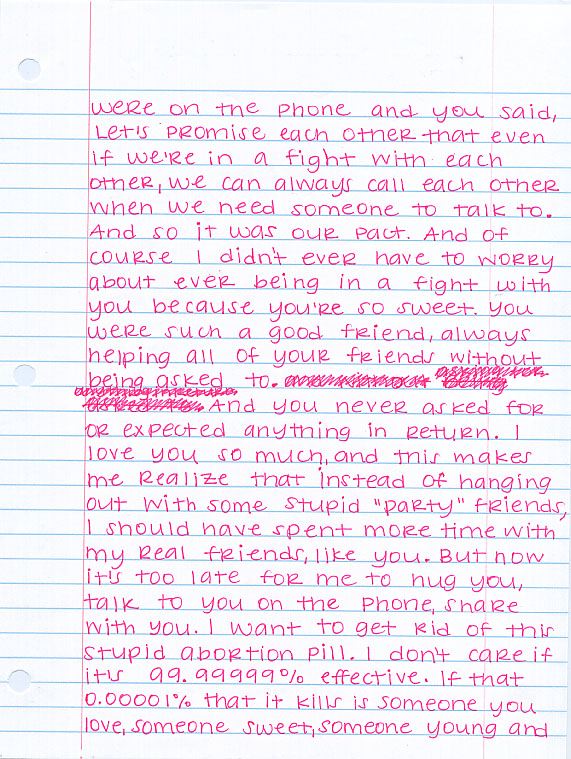 were on the phone and you said,
Let's promise each other that even
if we're in a fight with each
other, we can always call each other
when we need someone to talk to.
And so it was our pact. And of
course I didn't ever have to worry
about ever being in a fight with
you because you're so sweet. You
were such a good friend, always
helping all of your friends without
being asked to.
And you never asked for
or expected anything in return. I
love you so much, and this makes
me realize that instead of hanging
out with some stupid "party" friends,
I should have spent more time with
my real friends, like you. But now
it's too late for me to hug you,
talk to you on the phone, share
with you. I want to get rid of this
stupid abortion pill. I don't care if
it's 99.99999% effective. If that
0.00001% that it kills is someone you
love, someone sweet, someone young and